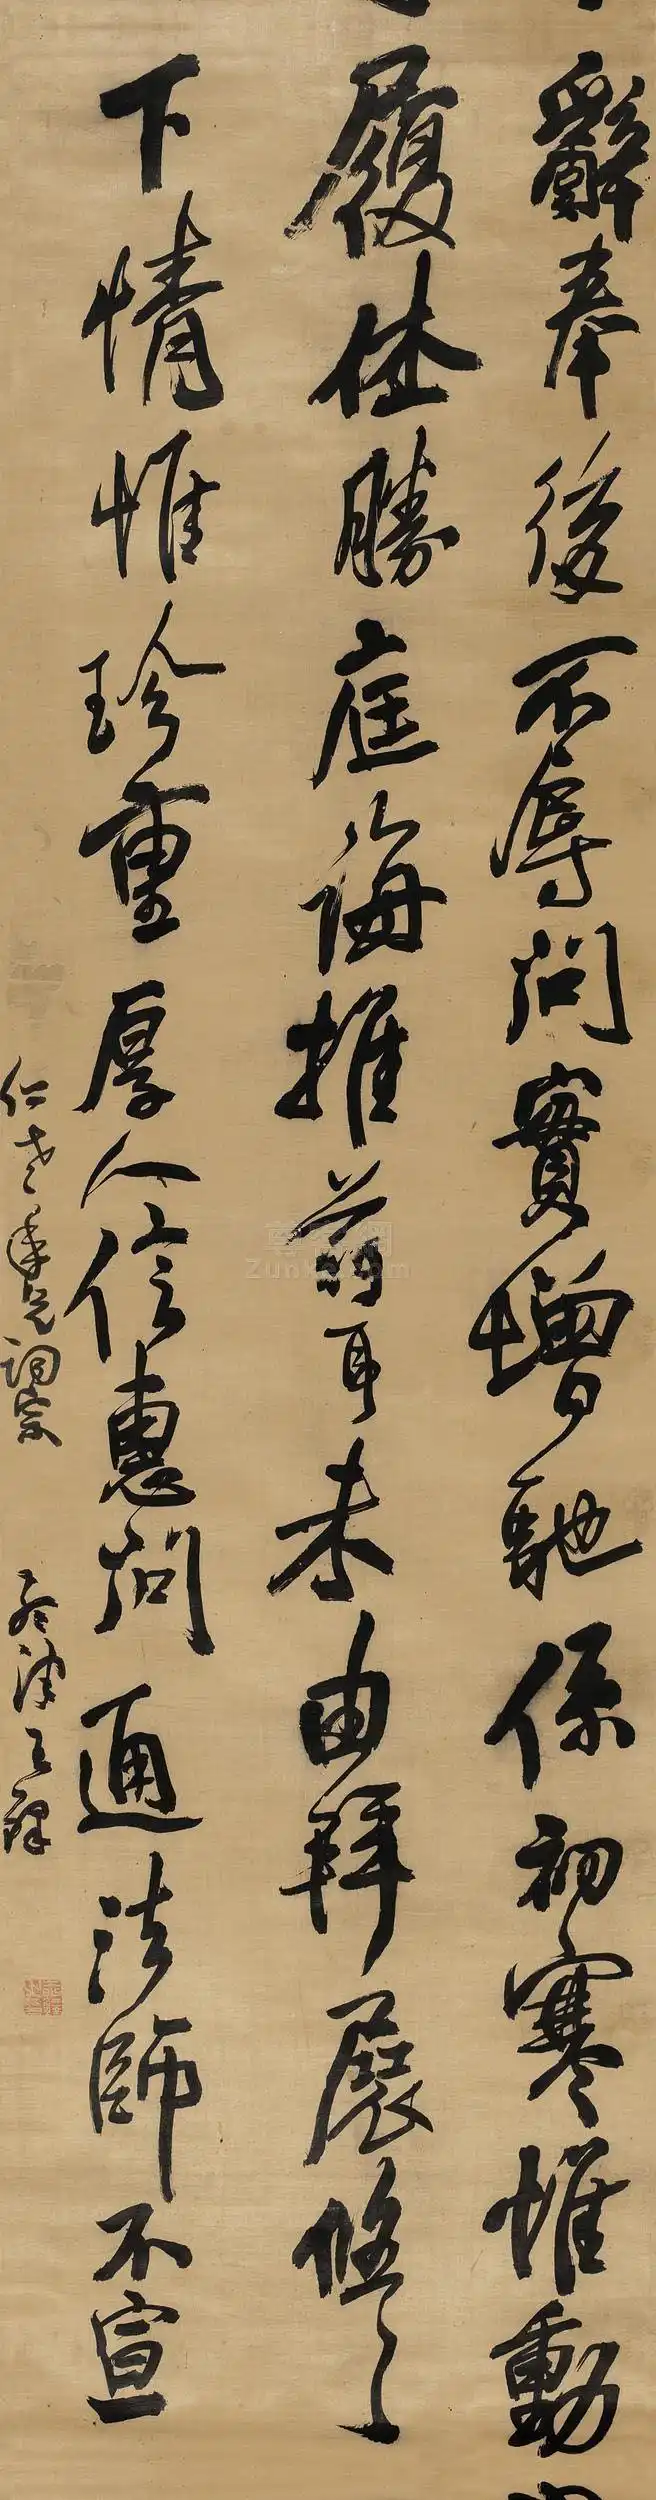 辭奉後不辱問實增馳係初寒惟動
履休勝庭誨推前耳未由拜展悠〻
下情惟珍重厚人信惠問通法師不宣
仁老年兄詞宗
孟津王鐸
Zunke.com